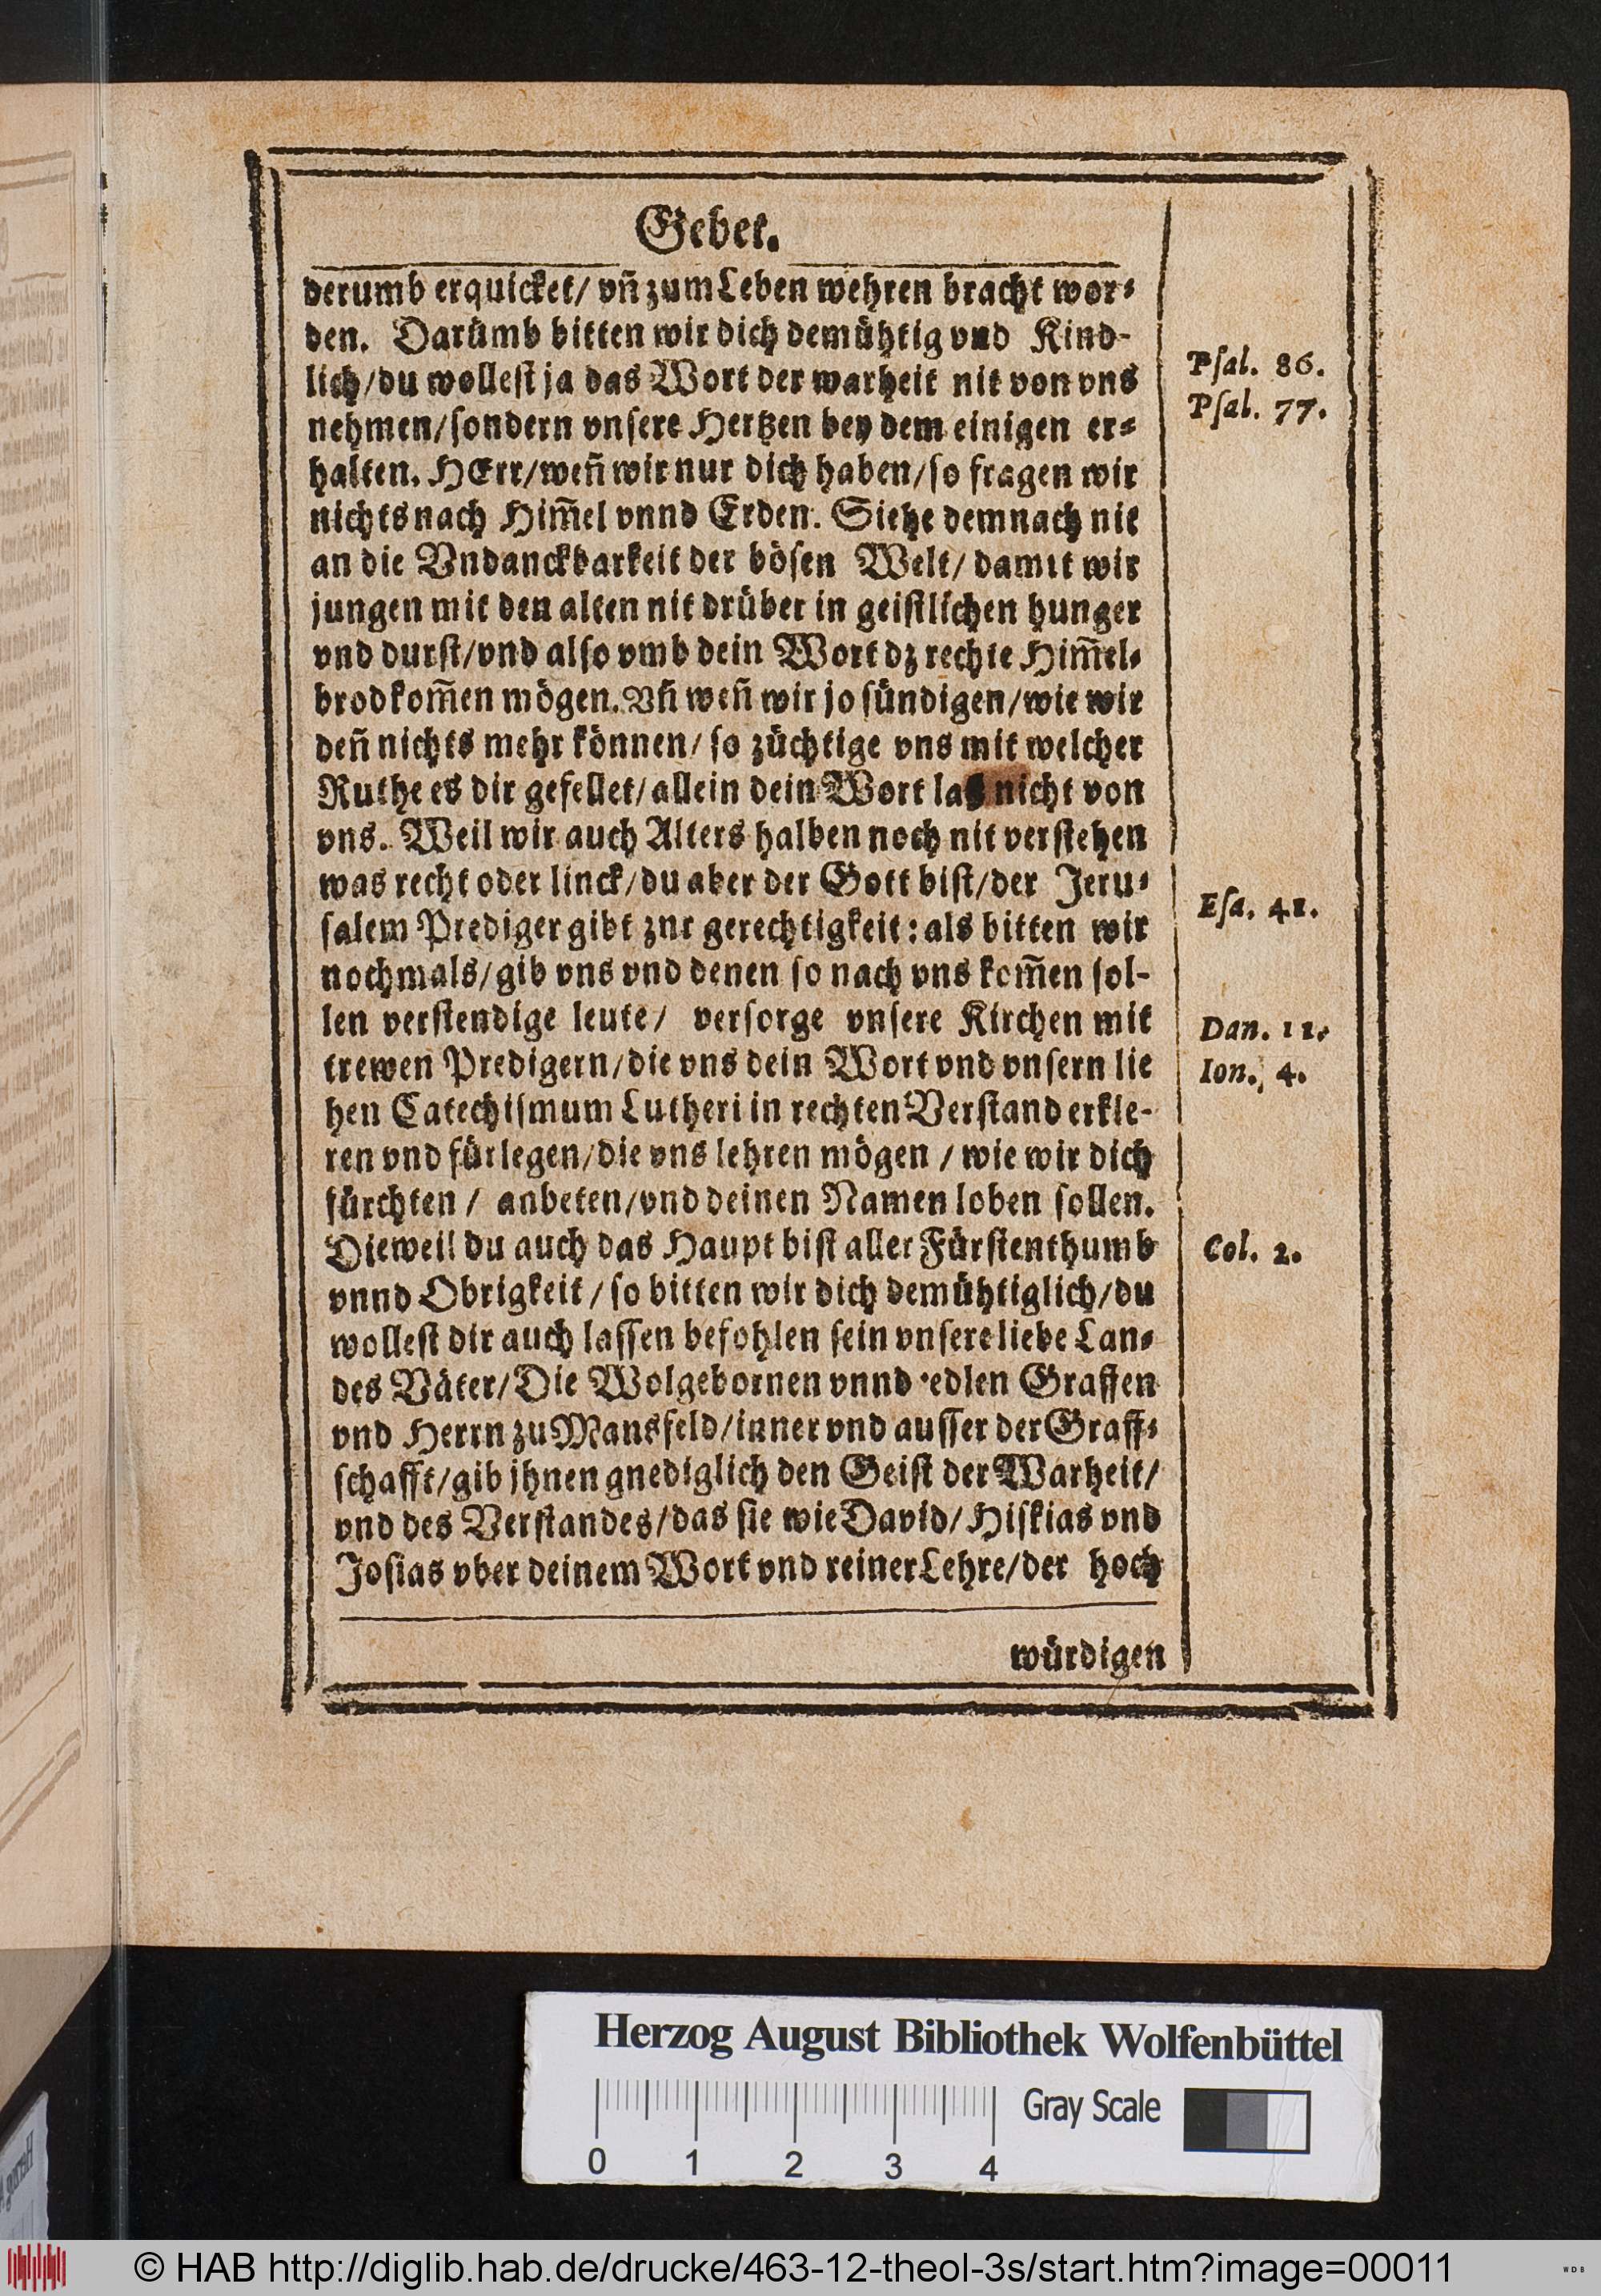 Gebet.
derumb erquicket/ vñ zum Leben wehren bracht wor⸗
den. Darümb bitten wir dich demühtig vnd Kind-
lich/du wollest ja das Wort der warheit nit von vns
nehmen/sondern vnsere Hertzen bey dem einigen er⸗
halten. HErr/weñ wir nur dich haben/so fragen wir
nichts nach Him̃el vnnd Erden. Siehe demnach nit
an die Vndanckbarkeit der bösen Welt/ damit wir
jungen mit den alten nit drüber in geistlichen hunger
vnd durst/vnd also vmb dein Wort dz rechte Him̃el⸗
brod kom̃en mögen. Vñ weñ wir jo sündigen/wie wir
deñ nichts mehr können/ so züchtige vns mit welcher
Ruthe es dir gefellet/allein dein Wort las nicht von
vns. Weil wir auch Alters halben noch nit verstehen
was recht oder linck/du aber der Gott bist/der Jeru⸗
salem Prediger gibt znr gerechtigkeit: als bitten wir
nochmals/gib vns vnd denen so nach vns kom̃en sol-
len verstendige leute/ versorge vnsere Kirchen mit
trewen Predigern/die vns dein Wort vnd vnsern lie
hen Catechismum Lutheri in rechten Verstand erkle-
ren vnd fürlegen/die vns lehren mögen / wie wir dich
fürchten / anbeten/vnd deinen Namen loben sollen.
Dieweil du auch das Haupt bist aller Fürstenthumb
vnnd Obrigkeit / so bitten wir dich demühtiglich/du
wollest dir auch lassen befohlen sein vnsere liebe Lan⸗
des Väter/Die Wolgebornen vnnd edlen Graffen
vnd Herrn zu Mansfeld/inner vnd ausser der Graff⸗
schafft/gib jhnen gnediglich den Geist der Warheit/
vnd des Verstandes/das sie wie David/ Hiskias vnd
Josias vber deinem Wort vnd reiner Lehre/der hoch
würdigen
Psal. 86.
Psal. 77.
Esa. 41.
Dan. 11.
Ion. 4.
Col. 2.
Herzog August Bibliothek Wolfenbüttel
Gray Scale
0 1 2 3 4
© HAB http://diglib.hab.de/drucke/463-12-theol-3s/start.htm?image=00011